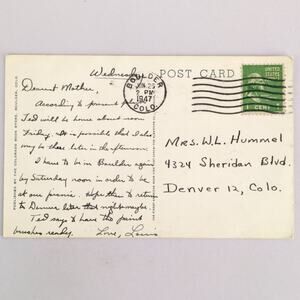 Wednesday
Dearest Mother,
According to present
Ted will be home about noon
Friday. It is possible that I also
may be there later in the afternoon.
I have to be in Boulder again
by Saturday noon in order to be
at our picnic. Hope then to return
to Denver later that night maybe.
Ted says to have the paint
brushes ready. Love, Louis
POST CARD
BOULDER
2 PM
1947
COLO.
UNITED STATES
1 CENT
Mrs. W.L. Hummel
4324 Sheridan Blvd.
Denver 12, Colo.